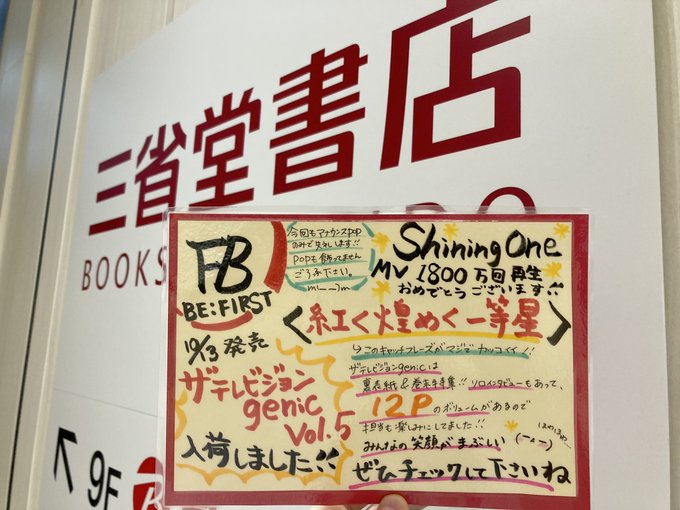 三省堂書店
BOOKS
FB
BE:FIRST
10/3 発売
ザテレビジョン
genic
Vol.5
入荷しました!!
今回もアナウンスpop
のみで失礼します!!
popも飾ってません
ごうふ下さい。
m(__)m
Shining One
MV 1800万回再生
おめでとうございます!!
<紅く煌めく一等星>
↳このキャッチフレーズがマジでカッコイイ!!
ザテレビジョンgenicは
裏表紙&巻末特集!! ソロインタビューもあって、
12Pのボリュームがあるので
担当も楽しみにしてました!!
みんなの笑顔がまぶしい
ぜひチェックして下さいね
↖ 9F